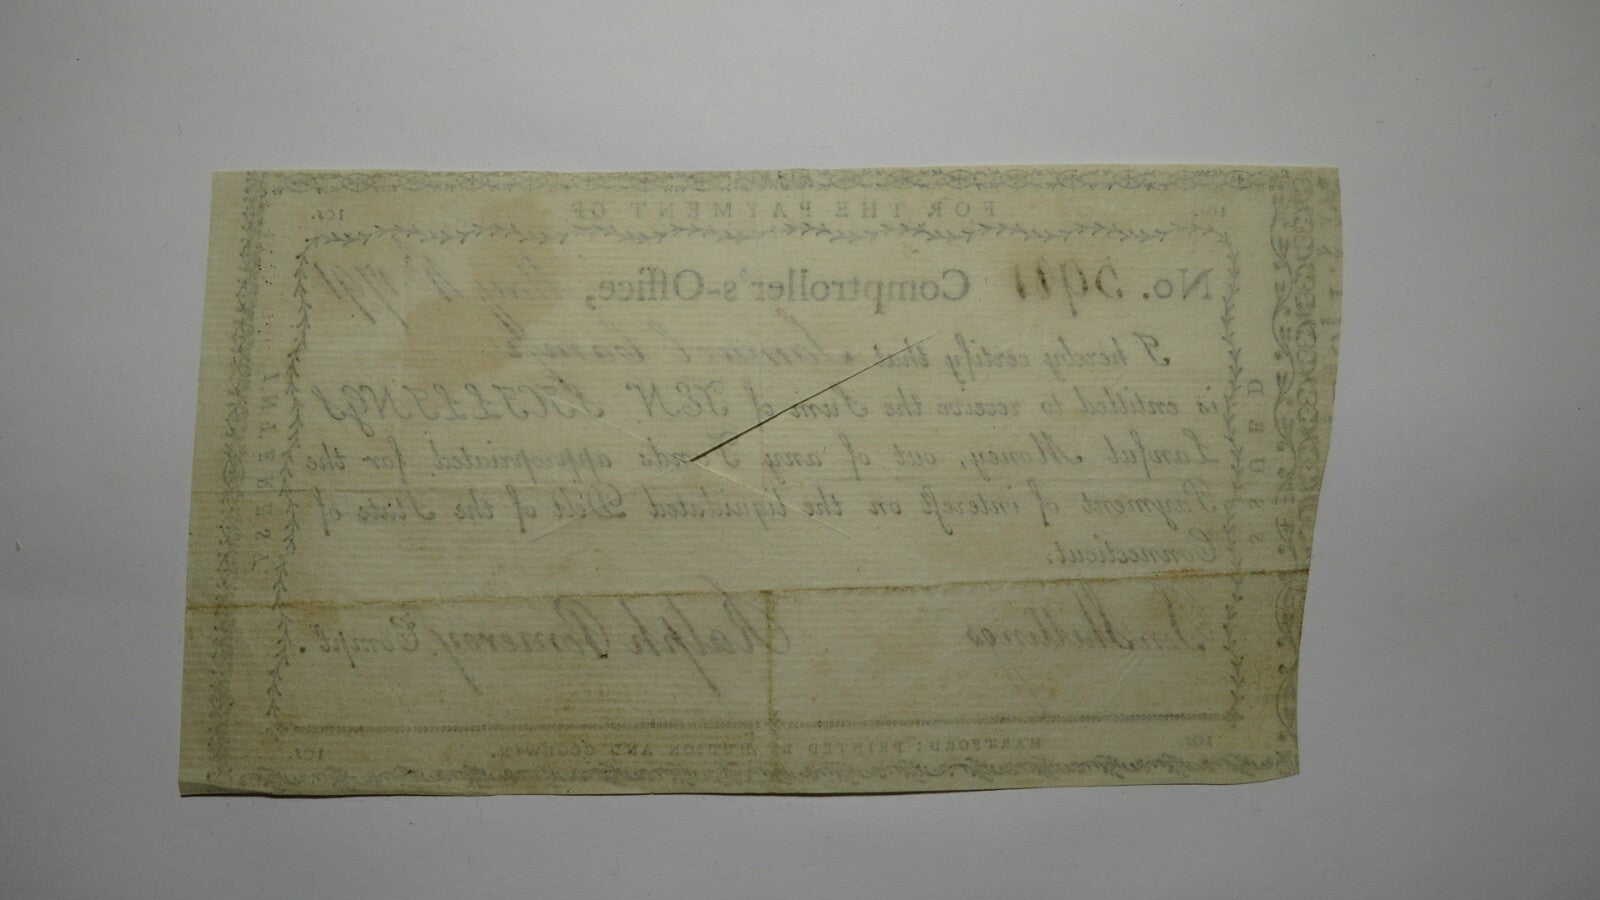 FOR THE PAYMENT OF
10s. 10s.
No. Comptroller's-Office, 1791
I hereby certify that
is entitled to receive the Sum of TEN SHILLINGS
Lawful Money, out of any Funds appropriated for the
Payment of interest on the liquidated Debt of the State of
Connecticut.
Ten Shillings Ralph Pomeroy Compt.
10s. HARTFORD: PRINTED BY HUDSON AND GOODWIN. 10s.
INTEREST